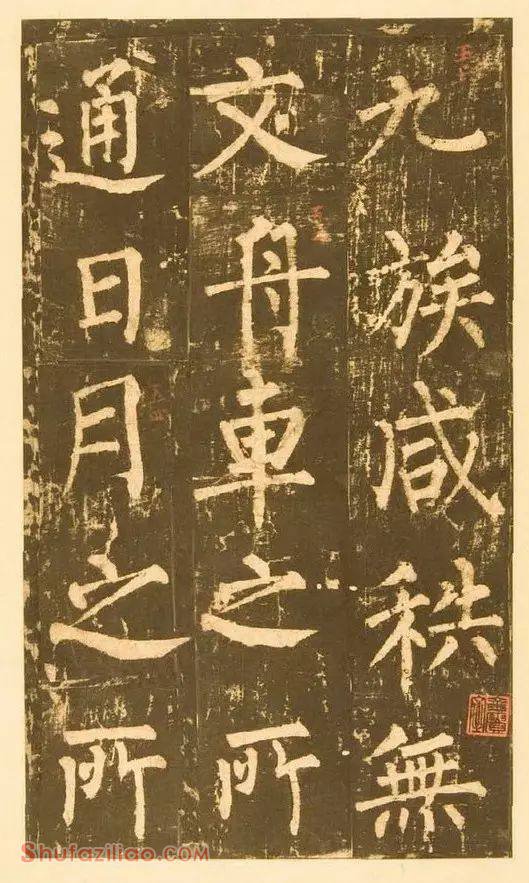 九族咸秩無
文舟車之所
通日月之所
Shufaziliao.com